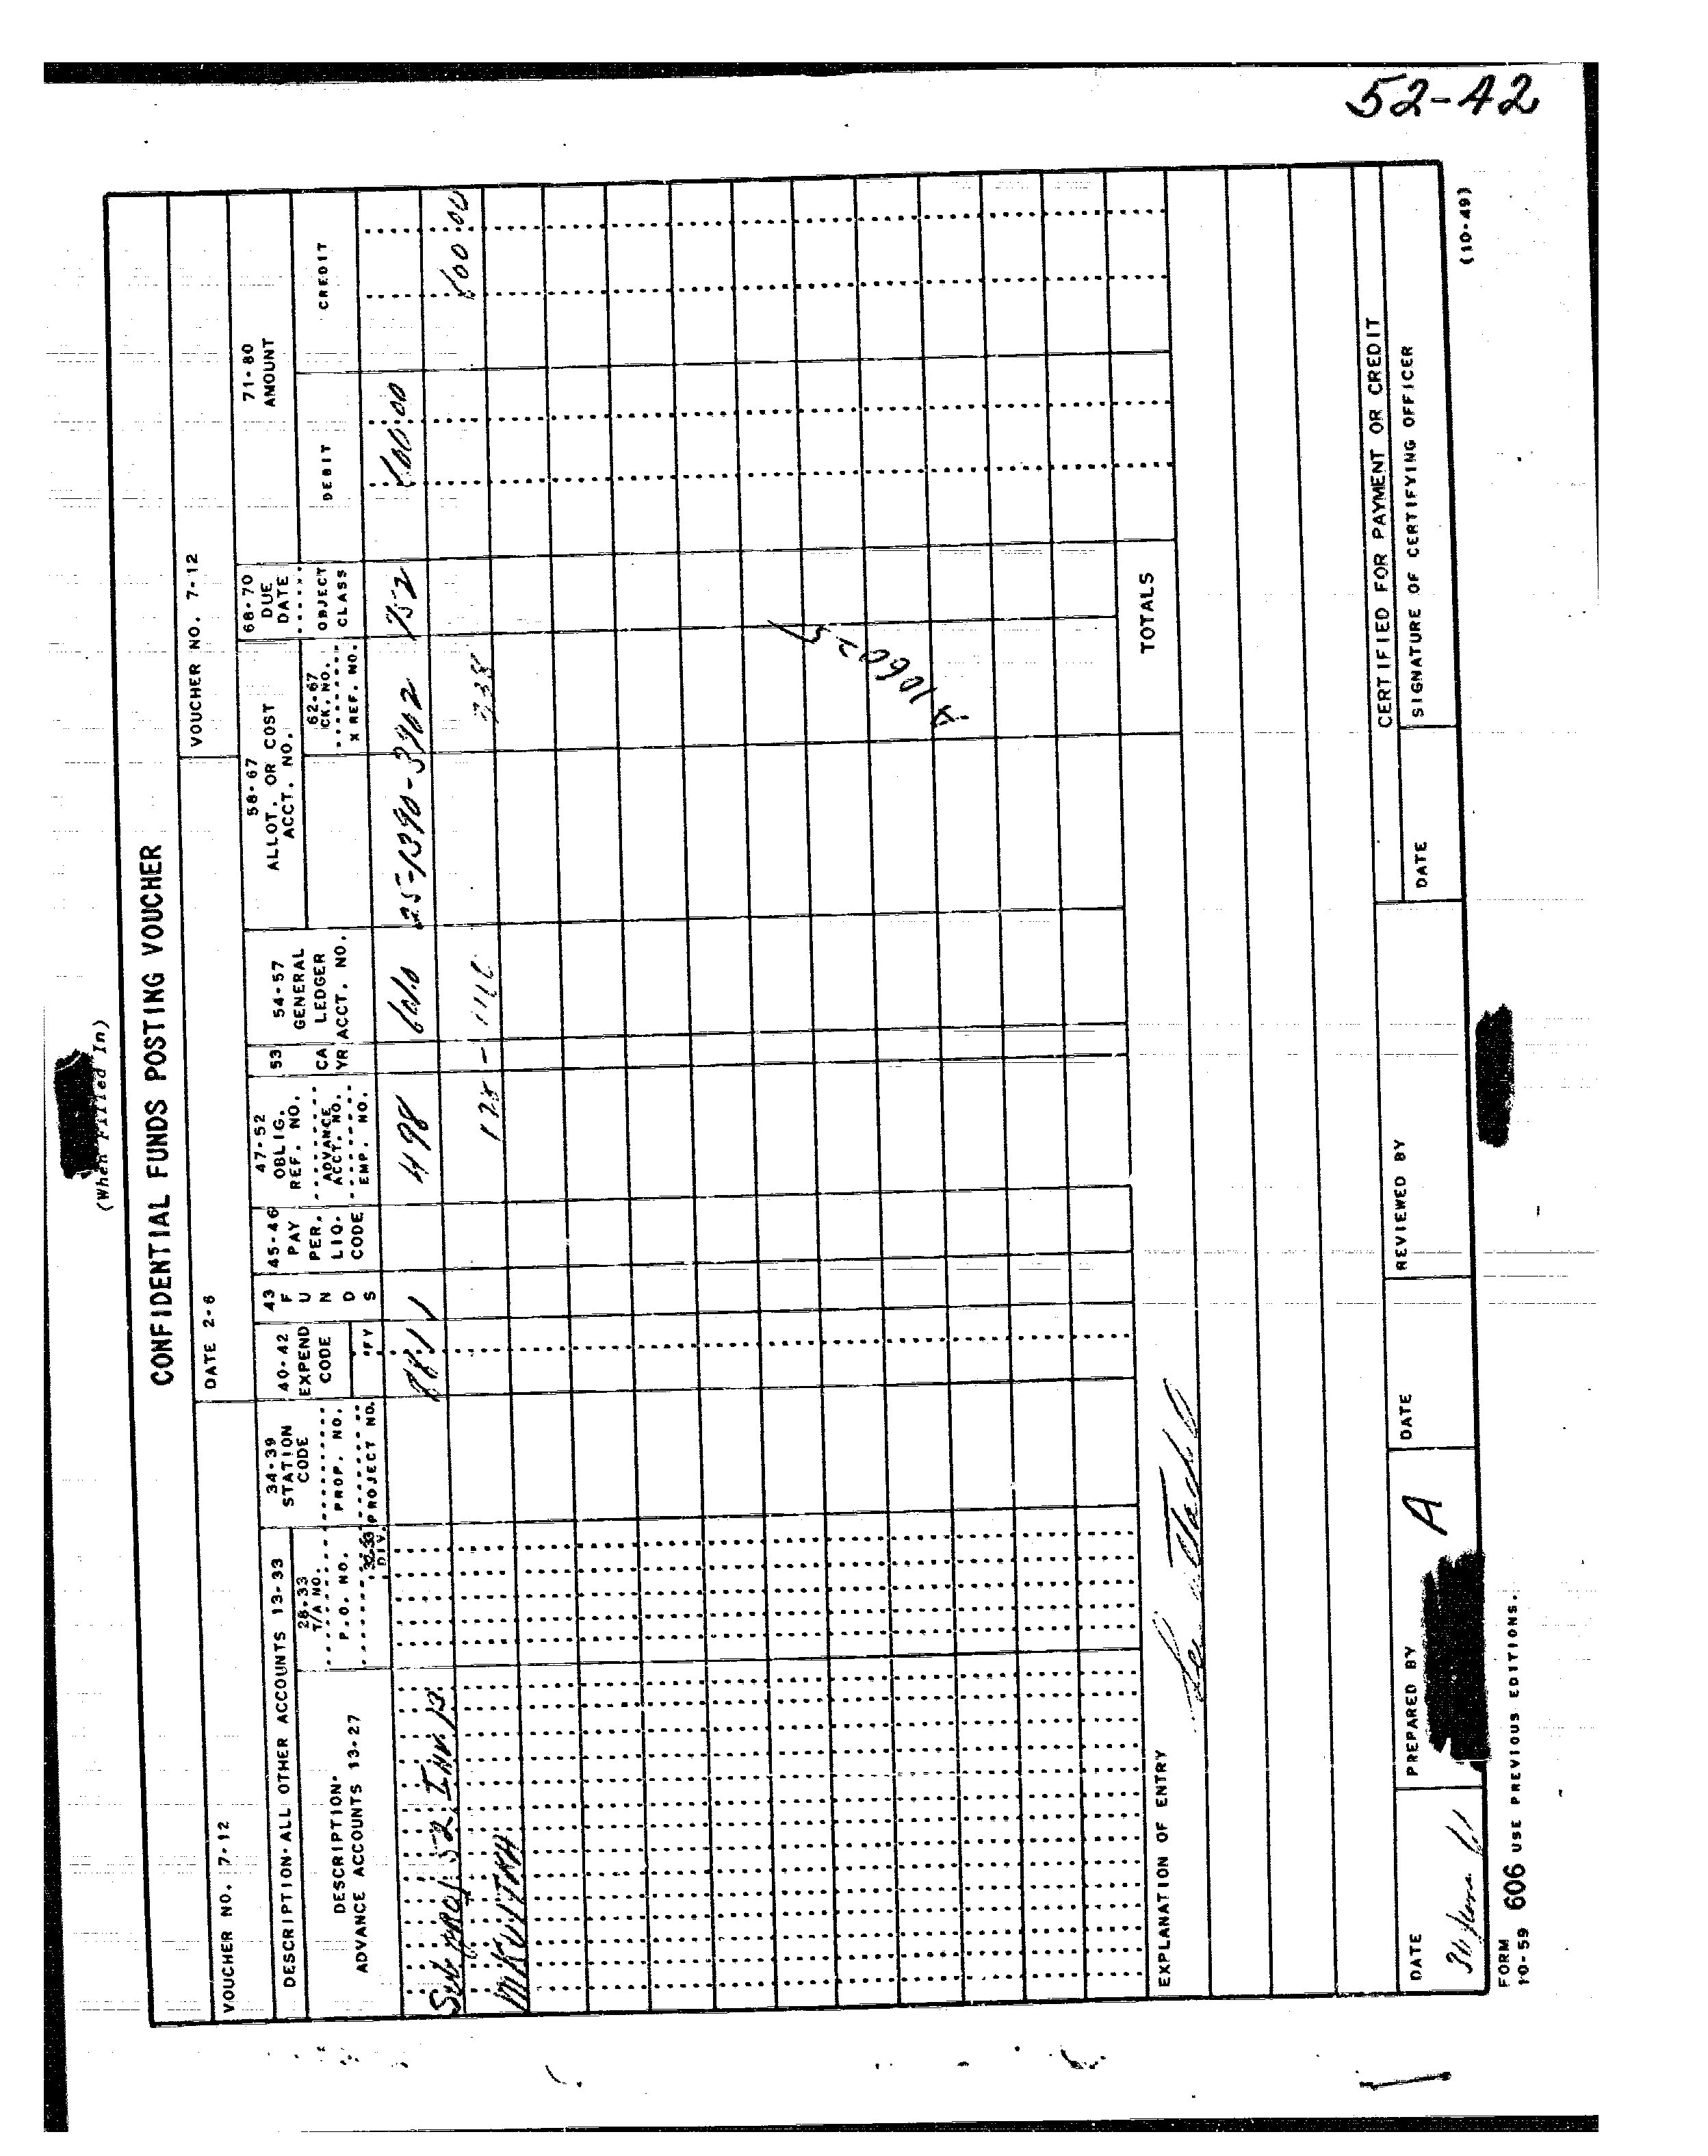 52-42
(When Filled In)
CONFIDENTIAL FUNDS POSTING VOUCHER
VOUCHER NO. 7-12
DATE 2-6
VOUCHER NO. 7-12
DESCRIPTION-ALL OTHER ACCOUNTS 13-33
DESCRIPTION-
ADVANCE ACCOUNTS 13-27
28-33
T/A NO.
P.O. NO.
32-33
DIV.
34-39
STATION
CODE
PROP. NO.
PROJECT NO.
40-42
EXPEND
CODE
FY
43
F
U
N
D
S
45-46
PAY
PER.
LIQ.
CODE
47-52
OBLIG.
REF. NO.
ADVANCE
ACCT. NO.
EMP. NO.
53
CA
YR
54-57
GENERAL
LEDGER
ACCT. NO.
58-67
ALLOT. OR COST
ACCT. NO.
62-67
CK. NO.
X REF. NO.
68-70
DUE
DATE
OBJECT
CLASS
71-80
AMOUNT
DEBIT
CREDIT
Sub proj. 52, INV. 13 498 25-1390-3902 600.00
MKULTRA 600 00
TOTALS
EXPLANATION OF ENTRY
See attached
CERTIFIED FOR PAYMENT OR CREDIT
DATE
PREPARED BY
A
DATE
REVIEWED BY
DATE
SIGNATURE OF CERTIFYING OFFICER
FORM
10-59 606 USE PREVIOUS EDITIONS.
(10-49)